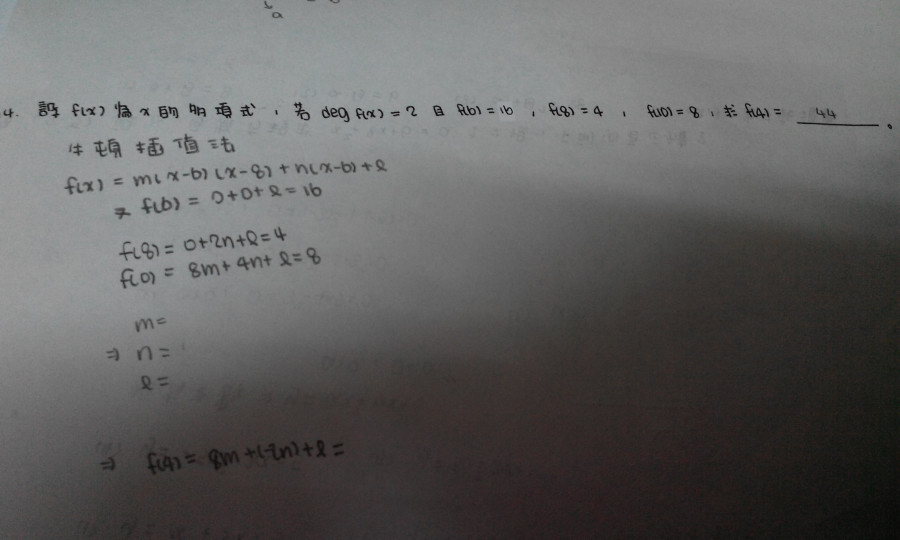 a
4. 設 f(x) 為 x 的多項式，若 deg f(x) = 2 且 f(6) = 16 , f(8) = 4 , f(10) = 8 , 求 f(4) = 44 。
牛頓插值法
f(x) = m(x-6)(x-8) + n(x-6) + l
f(6) = 0+0+l = 16
f(8) = 0+2n+l = 4
f(10) = 8m+4n+l = 8
m =
⇒ n =
l =
⇒ f(4) = 8m+(-2n)+l =